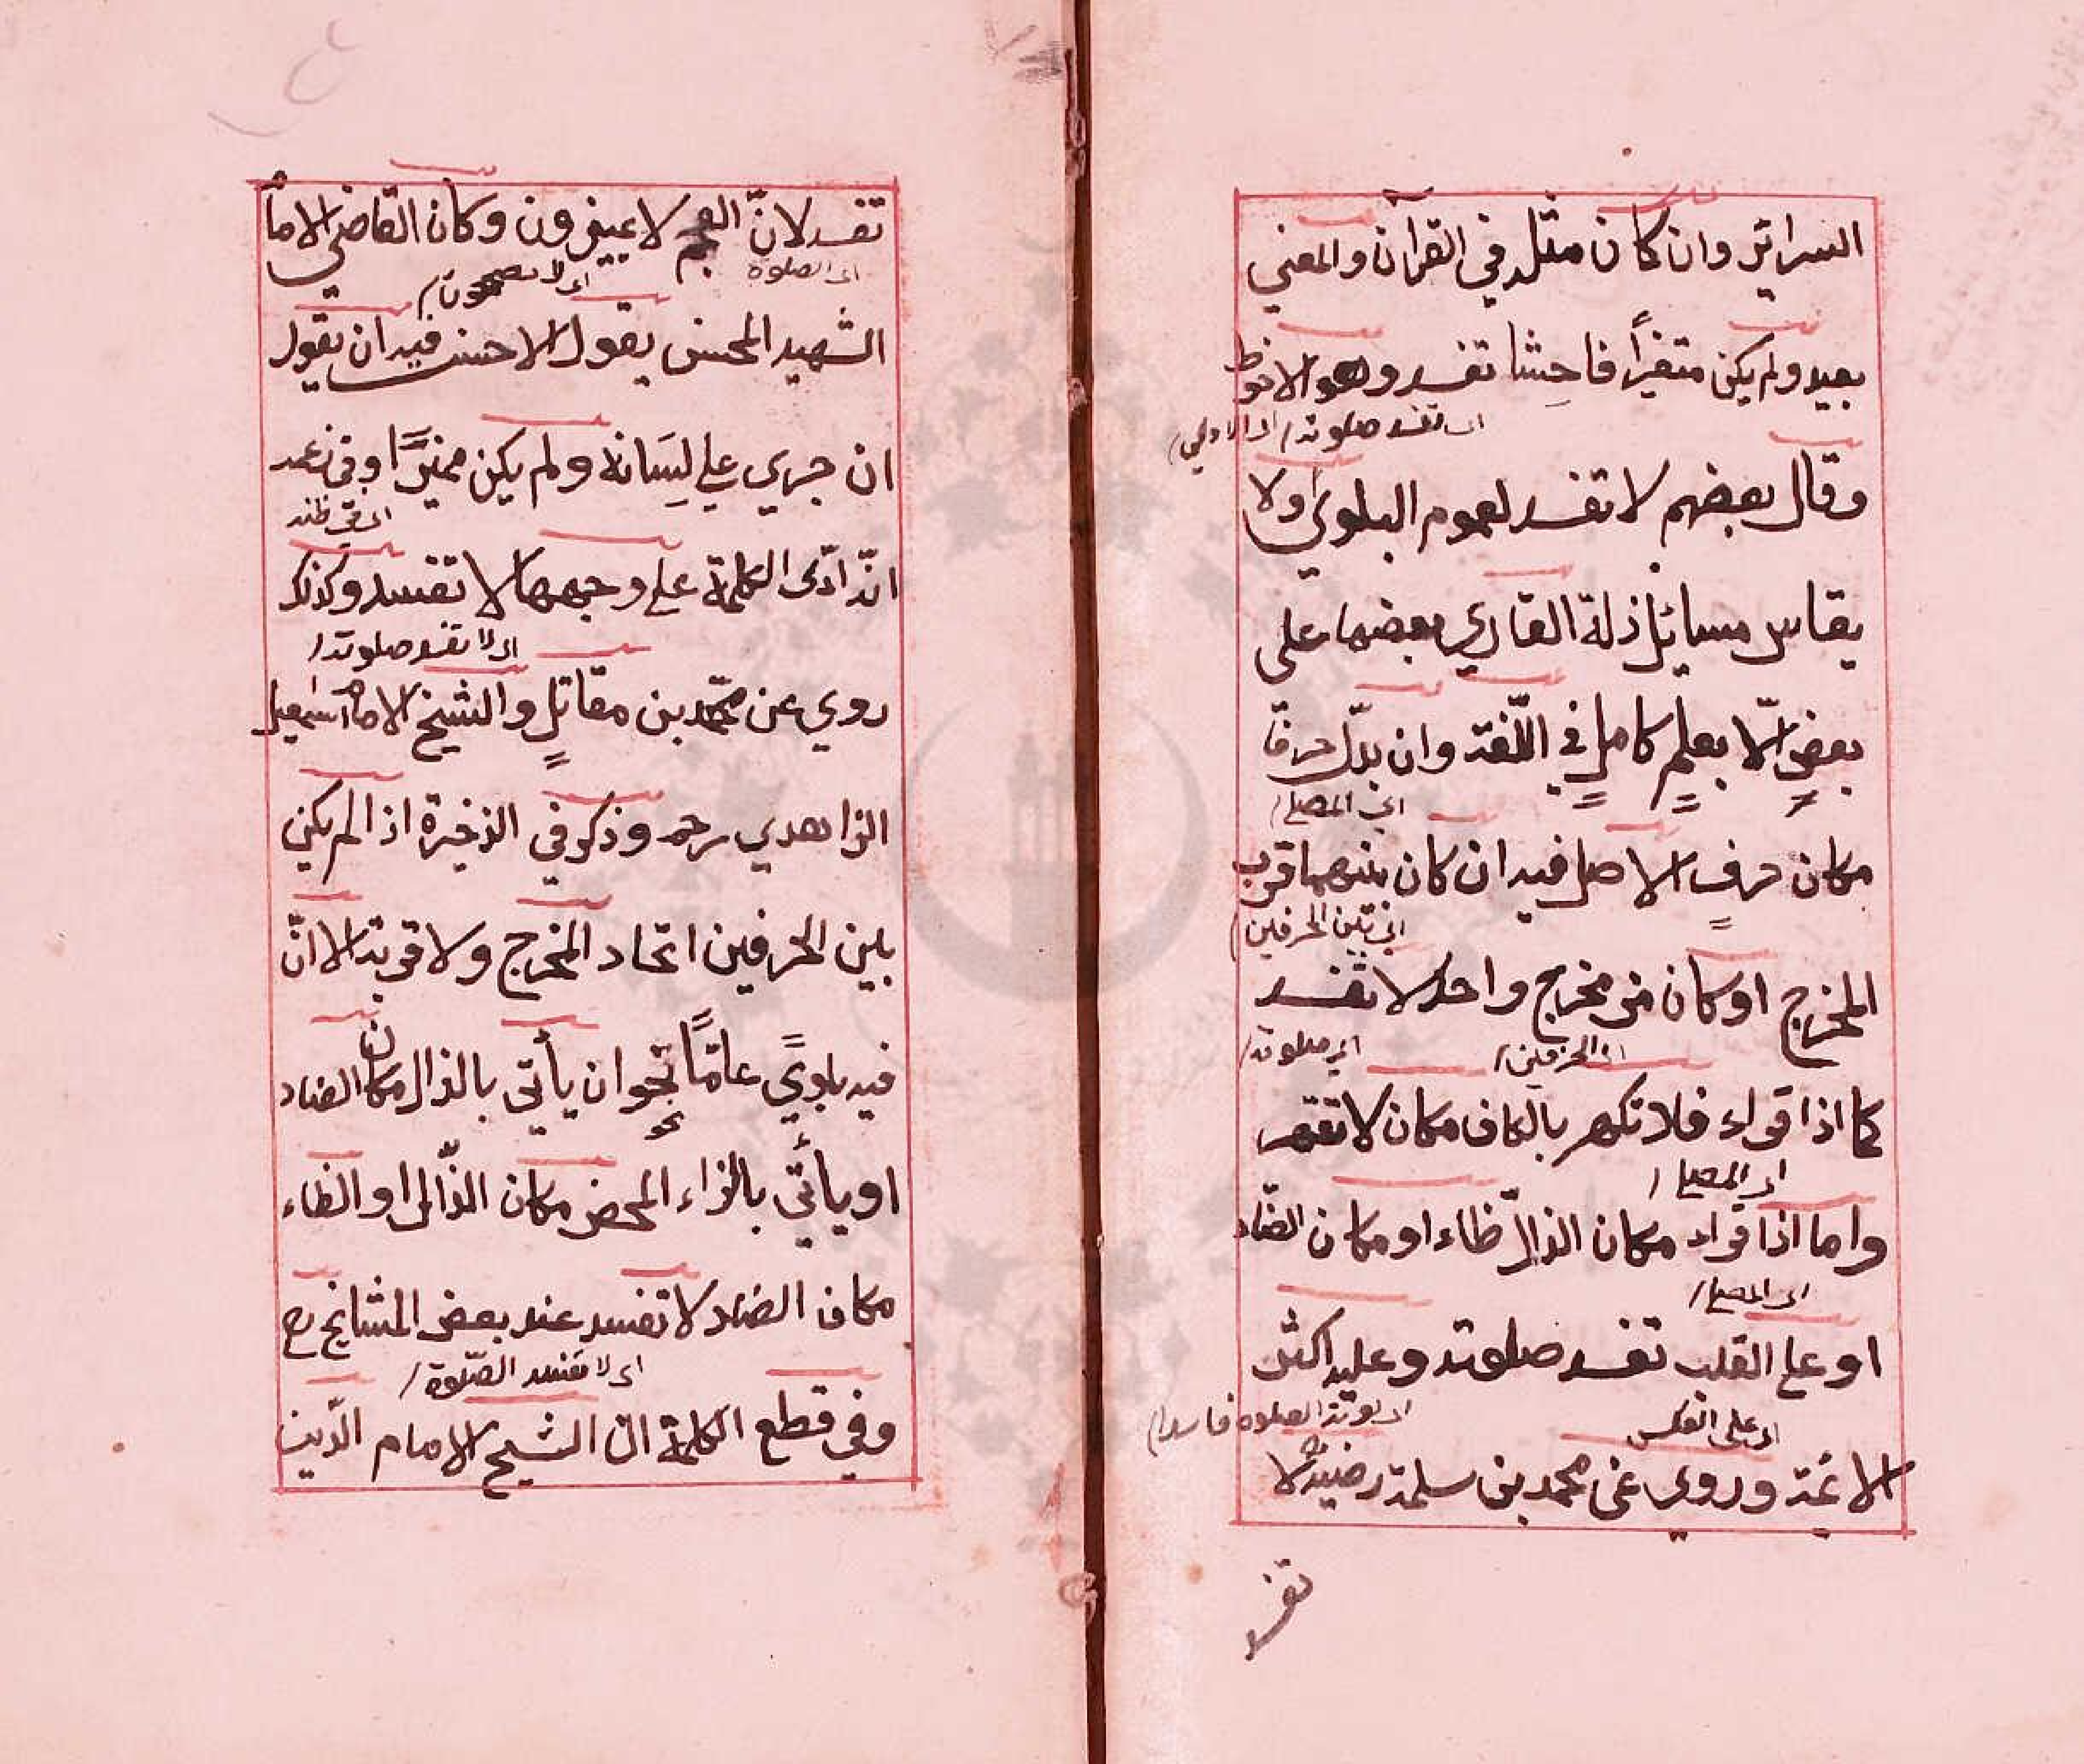 السرائر وان كان مثله في القرآن والمعني
بعيد ولم يكن متغيراً فاحشا تفسد وهو الاحوط
اى تفسد صلوته / اى الاولي /
وقال بعضهم لا تفسد لعموم البلوي اولا
يقاس مسايل زلة القاري بعضها على
بعضٍ الّا بعلمٍ كاملٍ في اللّغة وان بدّل حرفا
اى المصلي /
مكان حرفٍ الاصل فيه ان كان بينهما قرب
اى بين الحرفين /
المخرج او كان من مخرج واحد لا تفسد
اى الحرفين / اى صلوته /
كما اذا قراء فلا تكهر بالكاف مكان لا تقهر
اى المصلي /
واما اذا قراء مكان الذال ظاء او مكان الضاد
اى المصلي /
او علي القلب تفسد صلوته وعليه اكثر
اى على العكس اى بكون الصلوة فاسدا /
الائمة وروي عن محمد بن سلمة رضيه لا
تفسد
تفسد لانّ العجم لا يميزون وكان القاضي الامام
اى الصلوة اى لا يصححون /
الشهيد المحسن يقول الاحسن فيه ان يقول
ان جري علي لِسَانه ولم يكن مميزًا وفي زعمه
اى في ظنه
انّه ادّى الكلمة علي وجهها لا تفسد وكذلك
اى لا تفسد صلوته /
روي عن محمّد بن مقاتلٍ والشيخ الامام اسمعيل
الزاهدي رحمه وذكر في الذخيرة اذا لم يكن
بين الحرفين اتحاد المخرج ولا قربة الا انّ
فيه بلويً عامًّا نحو ان يأتي بالذال مكان الضاد
نحو
او يأتي بالزاء المحض مكان الذّال او الظاء
مكان الضاد لا تفسد عند بعض المشايخ رح
اى لا تفسد الصّلوة /
وفي قطع الكلمة انّ الشيخ الامام الدّين